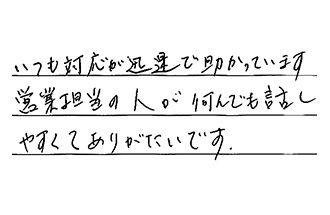 いつも対応が迅速で助かっています
営業担当の人が何んでも話し
やすくてありがたいです.